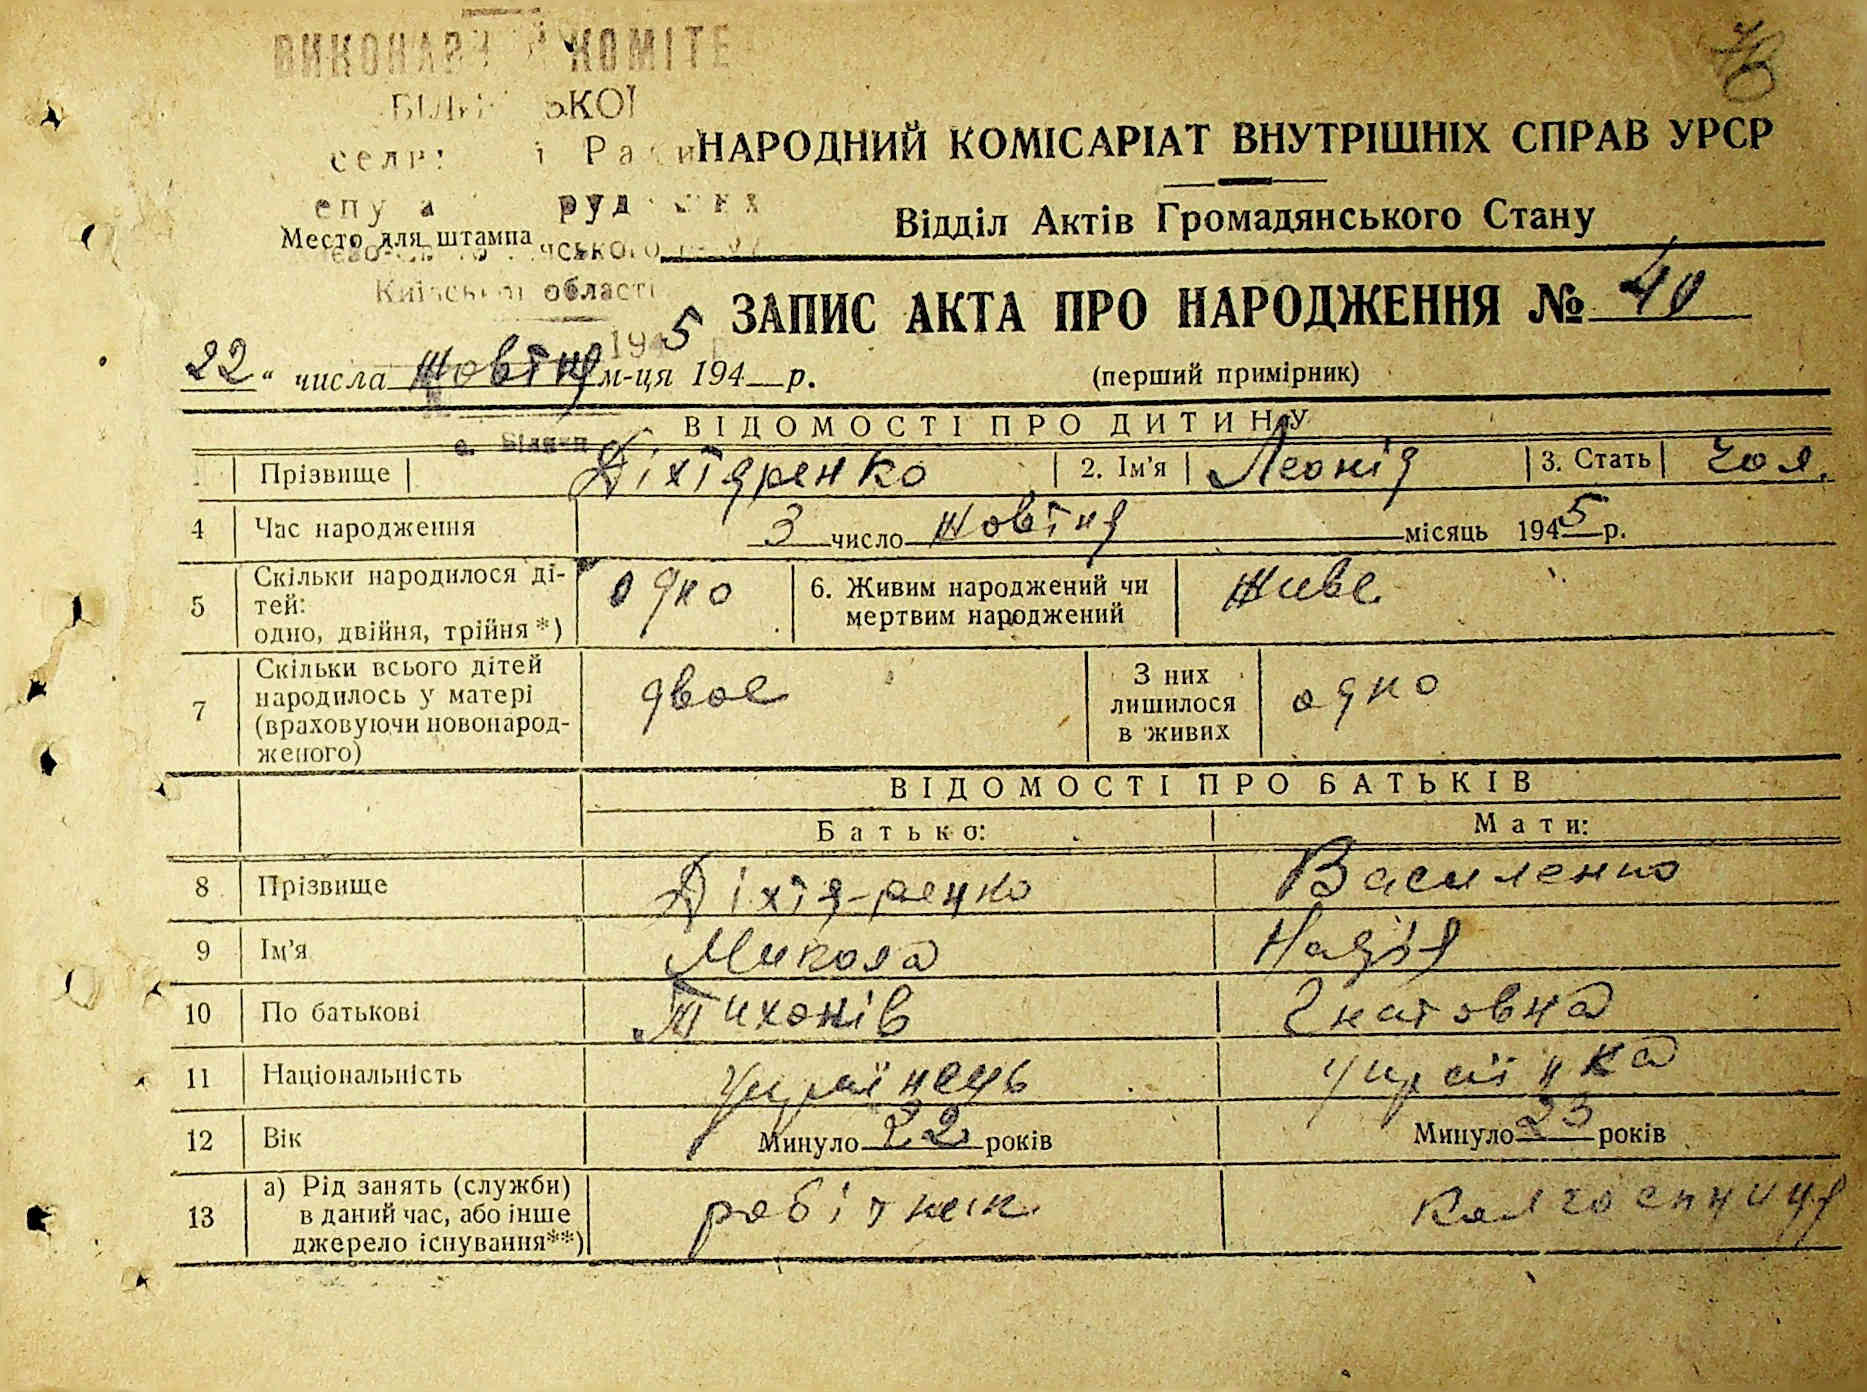 40
НАРОДНИЙ КОМІСАРІАТ ВНУТРІШНІХ СПРАВ УРСР
Відділ Актів Громадянського Стану
Место для штампа
Київської області
ЗАПИС АКТА ПРО НАРОДЖЕННЯ № 40
22 " числа Жовтня м-ця 194 р.
1945
(перший примірник)
ВІДОМОСТІ ПРО ДИТИНУ
Прізвище Діхтяренко 2. Ім'я Леонід 3. Стать чол.
4 Час народження 3 число Жовтня місяць 1945 р.
5 Скільки народилося ді-
тей:
одно, двійня, трійня*) одно 6. Живим народжений чи
мертвим народжений живе
7 Скільки всього дітей
народилось у матері
(враховуючи новонарод-
женого) двоє З них
лишилося
в живих одно
ВІДОМОСТІ ПРО БАТЬКІВ
Батько: Мати:
8 Прізвище Діхтя-ренко Василенко
9 Ім'я Микола Надія
10 По батькові Тихонів Гнатовна
11 Національність Українець Українка
12 Вік Минуло 22 років Минуло 23 років
13 а) Рід занять (служби)
в даний час, або інше
джерело існування**) робітник колгоспниця